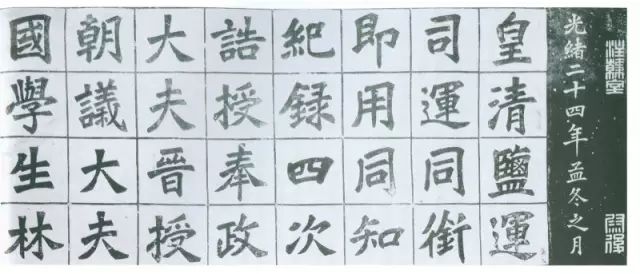 光緒二十四年孟冬之月
皇清鹽運
司運同銜
即用同知
紀録四次
誥授奉政
大夫晉授
朝議大夫
國學生林